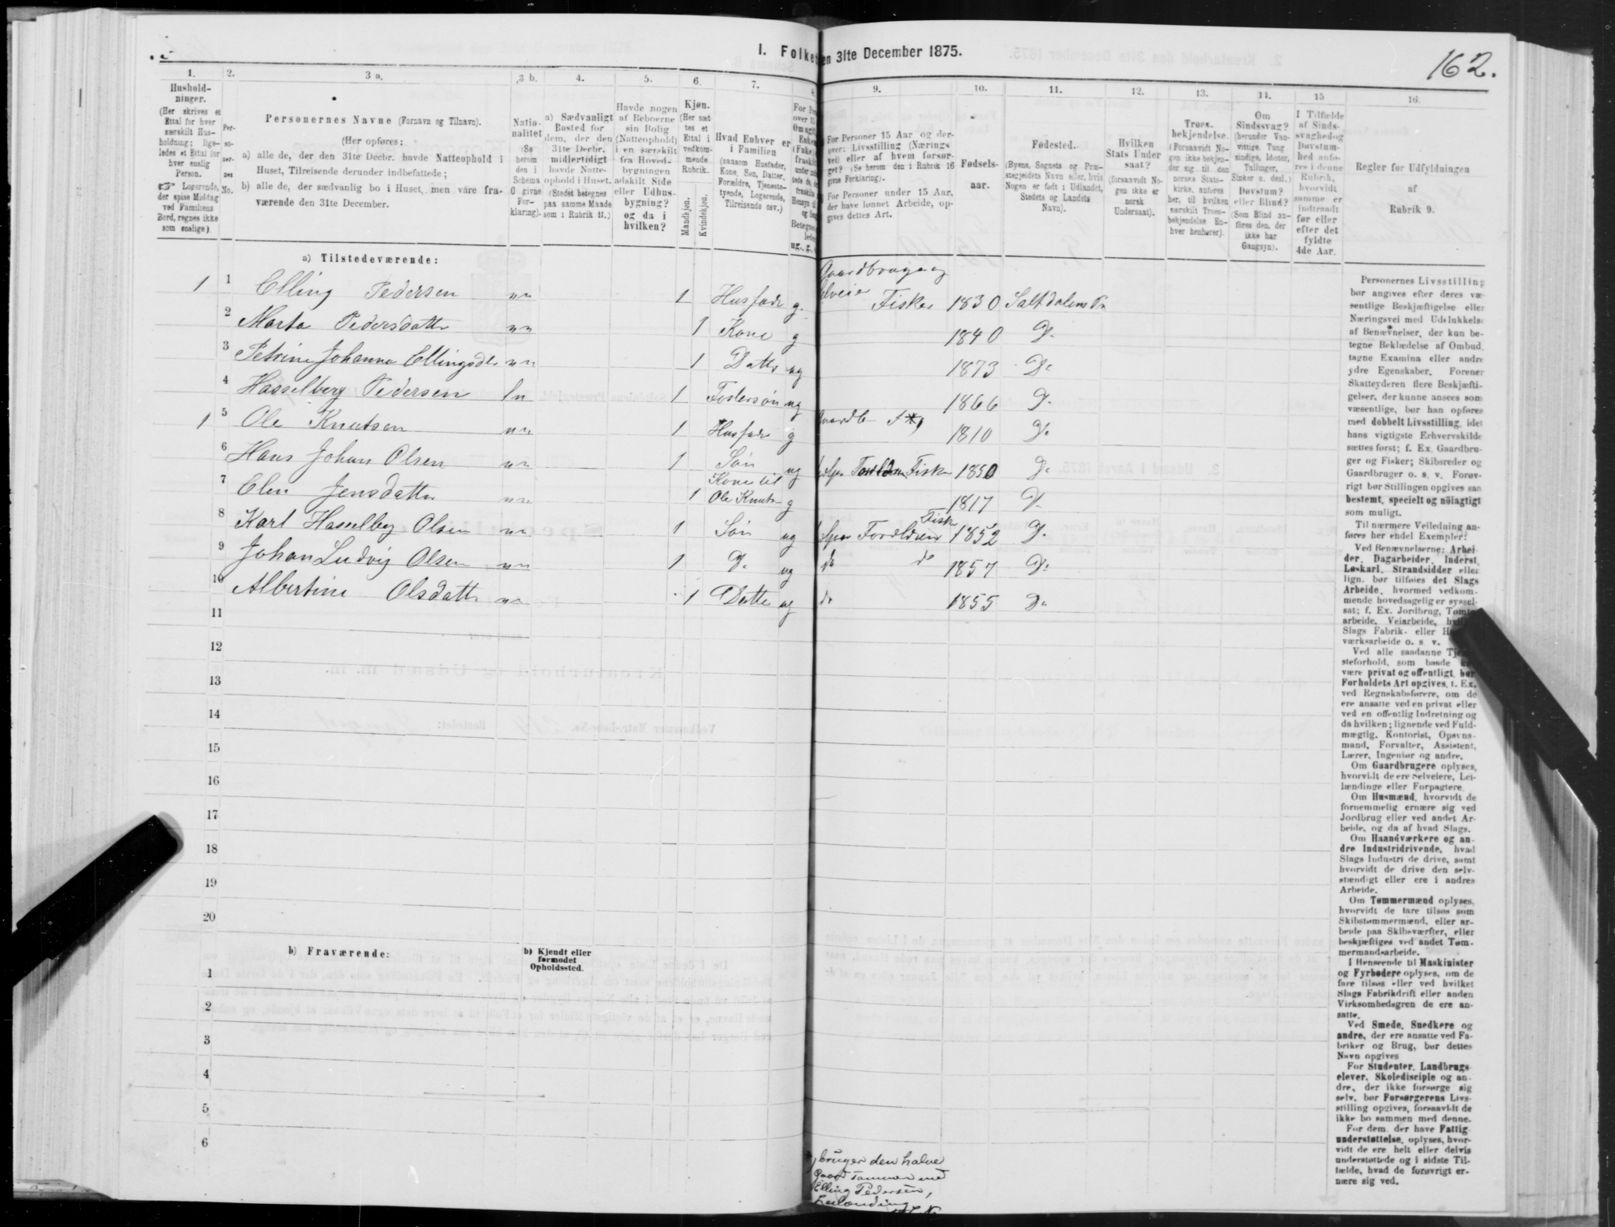 I. Folke
en 31te December 1875.
162.
1.
Hushold-
ninger.
(Her skrives et
Ettal for hver
særskilt Hus-
holdning; lige-
ledes et Ettal for
hver enslig
Person.
☞ Logerende,
der spise Middag
ved Familiens
Bord, regnes ikke
som enslige).
2.
Per-
so-
ner-
nes
No.
3 a.
Personernes Navne (Fornavn og Tilnavn).
(Her opføres:
a) alle de, der den 31te Decbr. havde Natteophold i
Huset, Tilreisende derunder indbefattede;
b) alle de, der sædvanlig bo i Huset, men vare fra-
værende den 31te December.
3 b.
Natio-
nalitet
(Se
herom
den i
Schema
0 givne
For-
klaring).
4.
a) Sædvanligt
Bosted for
dem, der den
31te Decbr.
midlertidigt
havde Natte-
ophold i Huset.
(Stedet betegnes
paa samme Maade
som i Rubrik 11.)
5.
Havde nogen
af Beboerne
sin Bolig
(Natteophold)
i en særskilt
fra Hoved-
bygningen
adskilt Side
eller Udhus-
bygning?
og da i
hvilken?
6.
Kjøn.
(Her sæt-
tes et
Ettal i
vedkom-
mende
Rubrik.
Mandkjøn.
Kvindekjøn.
7.
Hvad Enhver er
i Familien
(saasom Husfader,
Kone, Søn, Datter,
Forældre, Tjeneste-
tyende, Logerende,
Tilreisende osv.)
9.
For Personer 15 Aar og der-
over: Livsstilling (Nærings
vei) eller af hvem forsør-
get? (Se herom den i Rubrik 16
givne Forklaring).
For Personer under 15 Aar,
der have lønnet Arbeide, op-
gives dettes Art.
10.
Fødsels-
aar.
11.
Fødested.
(Byens, Sognets og Præ-
stegjeldets Navn eller, hvis
Nogen er født i Udlandet,
Stedets og Landets
Navn).
12.
Hvilken
Stats Under
saat?
(forsaavidt No-
gen ikke er
norsk
Undersaat).
13.
Troes-
bekjendelse.
(Forsaavidt No-
gen ikke bekjen-
der sig til den
norske Stats-
kirke, anføres
her, til hvilken
særskilt Troes-
bekjendelse En-
hver henhører).
14.
Om
Sindssvag?
(herunder Van-
vittige, Tung
sindige, Idioter,
Tullinger,
Sinker o. desl.)
Døvstum?
eller Blind?
(Som Blind an-
føres den, der
ikke har
Gangsyn).
15
I Tilfælde
af Sinds-
svaghed og
Døvstum-
hed anfø-
res i denne
Rubrik,
hvorvidt
samme er
indtraadt
før eller
efter det
fyldte
4de Aar.
16.
Regler for Udfyldningen
af
Rubrik 9.
a) Tilstedeværende:
Gaardbruger og
Selveier
1 1 Elling Pedersen nn 1 Husfader g. Fisker 1830 Saltdalens Pr
2 Marta Pedersdatter nn 1 Kone g 1840 Do
3 Petrine Johanna Ellingsdtr nn 1 Datter ug 1873 Do
4 Hasselberg Pedersen ln 1 Fostersøn ug 1866 Do
1 5 Ole Knutsen nn 1 Husfader g 1810 Do
6 Hans Johan Olsen nn 1 Søn ug Fisker 1850 Do
Kone til
7 Elen Jensdatter nn 1 Ole Knuts g 1817 Do
Fisk
8 Karl Hasselberg Olsen nn 1 Søn ug Forældrene 1852 Do
9 Johan Ludvig Olsen nn 1 Do ug do do 1857 Do
10 Albertine Olsdatter nn 1 Datter ug do 1855 Do
11
12
13
14
15
16
17
18
19
20
b) Fraværende:
b) Kjendt eller
formodet
Opholdssted.
1
2
3
4
5
6
bruger den halve
Gaard sammen med
Elling Pedersen,
Personernes Livsstilling
bør angives efter deres væ-
sentlige Beskjæftigelse eller
Næringsvei med Udelukkelse
af Benævnelser, der kun be-
tegne Beklædelse af Ombud,
tagne Examina eller andre
ydre Egenskaber. Forener
Skatteyderen flere Beskjæfti-
gelser, der kunne ansees som
væsentlige, bør han opføres
med dobbelt Livsstilling, idet
hans vigtigste Erhvervskilde
sættes først; f. Ex. Gaardbru-
ger og Fisker; Skibsreder og
Gaardbruger o. s. v. Forøv-
rigt bør Stillingen opgives saa
bestemt, specielt og nøiagtigt
som muligt.
Til nærmere Veiledning an-
føres her endel Exempler:
Ved Benævnelserne: Arbei-
der, Dagarbeider, Inderst,
Løskarl, Strandsidder eller
lign. bør tilføies det Slags
Arbeide, hvormed vedkom-
mende hovedsagelig er syssel-
sat; f. Ex. Jordbrug, Tomte-
arbeide, Veiarbeide, hvilket
Slags Fabrik- eller Haand-
værksarbeide o. s. v.
Ved alle saadanne Tjene-
steforhold, som baade kan
være privat og offentligt, bør
Forholdets Art opgives, f. Ex.
ved Regnskabsførere, om de
ere ansatte ved en privat eller
ved en offentlig Indretning og
da hvilken; lignende ved Fuld-
mægtig, Kontorist, Opsyns-
mand, Forvalter, Assistent,
Lærer, Ingeniør og andre.
Om Gaardbrugere oplyses,
hvorvidt de ere Selveiere, Lei-
lændinge eller Forpagtere.
Om Husmænd, hvorvidt de
fornemmelig ernære sig ved
Jordbrug eller ved andet Ar-
beide, og da af hvad Slags.
Om Haandværkere og an-
dre Industridrivende, hvad
Slags Industri de drive, samt
hvorvidt de drive den selv-
stændigt eller ere i andres
Arbeide.
Om Tømmermænd oplyses,
hvorvidt de fare tilsøs som
Skibstømmermænd, eller ar-
beide paa Skibsværfter, eller
beskjæftiges ved andet Tøm-
mermandsarbeide.
I Henseende til Maskinister
og Fyrbødere oplyses, om de
fare tilsøs eller ved hvilket
Slags Fabrikdrift eller anden
Virksomhedsgren de ere an-
satte.
Ved Smede, Snedkere og
andre, der ere ansatte ved Fa-
briker og Brug, bør dettes
Navn opgives
For Studenter, Landbrugs-
elever, Skoledisciple og an-
dre, der ikke forsørge sig
selv, bør Forsørgerens Livs-
stilling opgives, forsaavidt de
ikke bo sammen med denne.
For dem, der have Fattig-
understøttelse, oplyses, hvor-
vidt de ere helt eller delvis
understøttede og i sidste Til-
fælde, hvad de forøvrigt er-
nære sig ved.